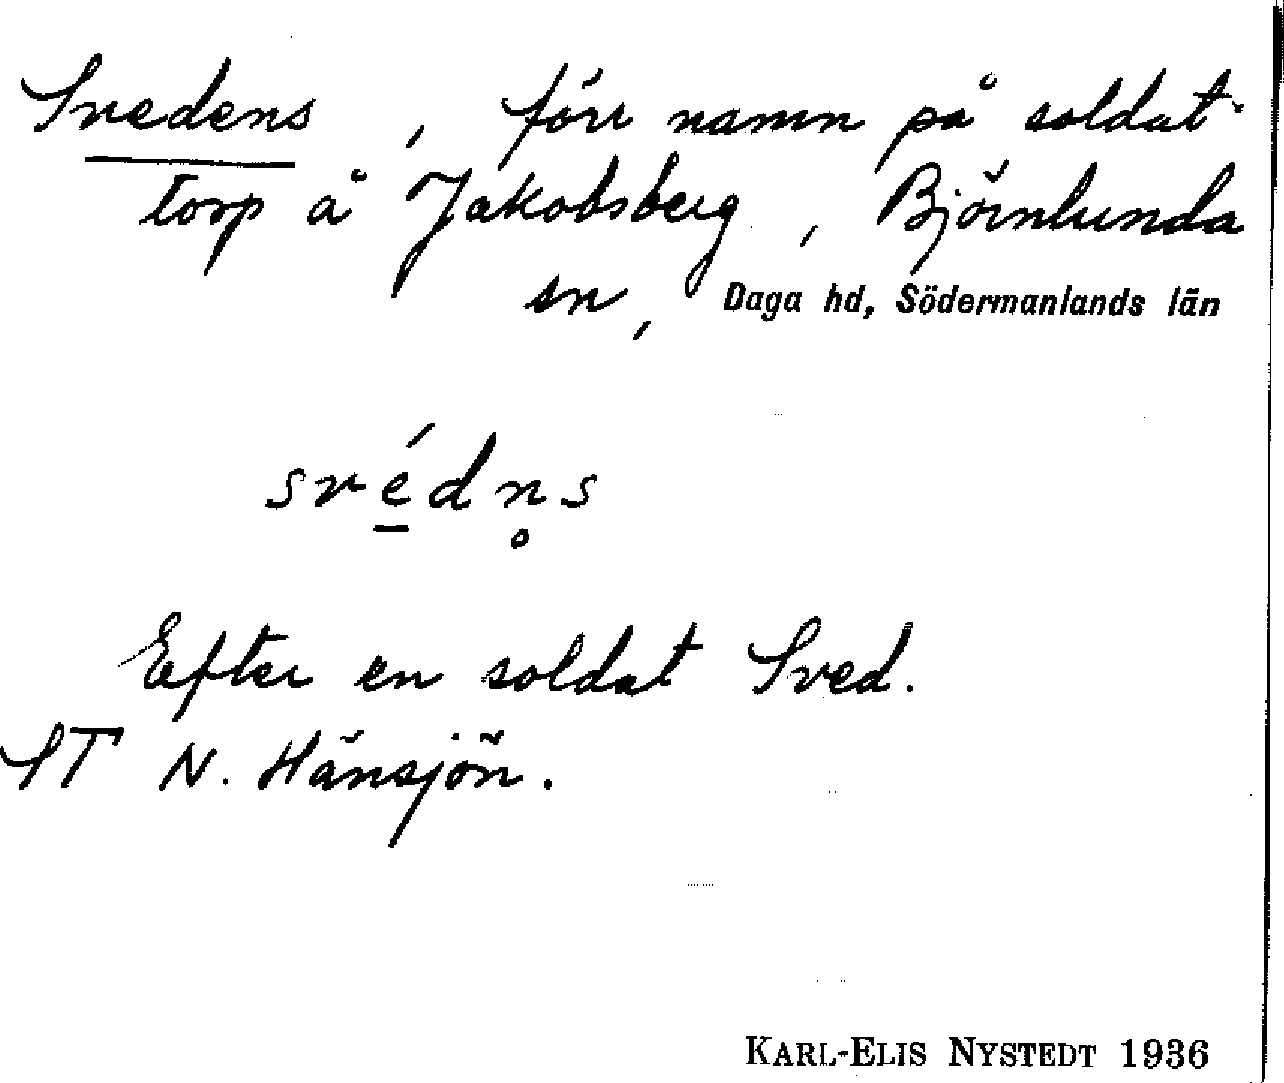 Svedens, förr namn på soldat-
torp å Jakobsberg, Björnlunda
sn, Daga hd, Södermanlands län
svédn̥s
Efter en soldat Sved.
ST N. Hänsjön.
KARL-ELIS NYSTEDT 1936